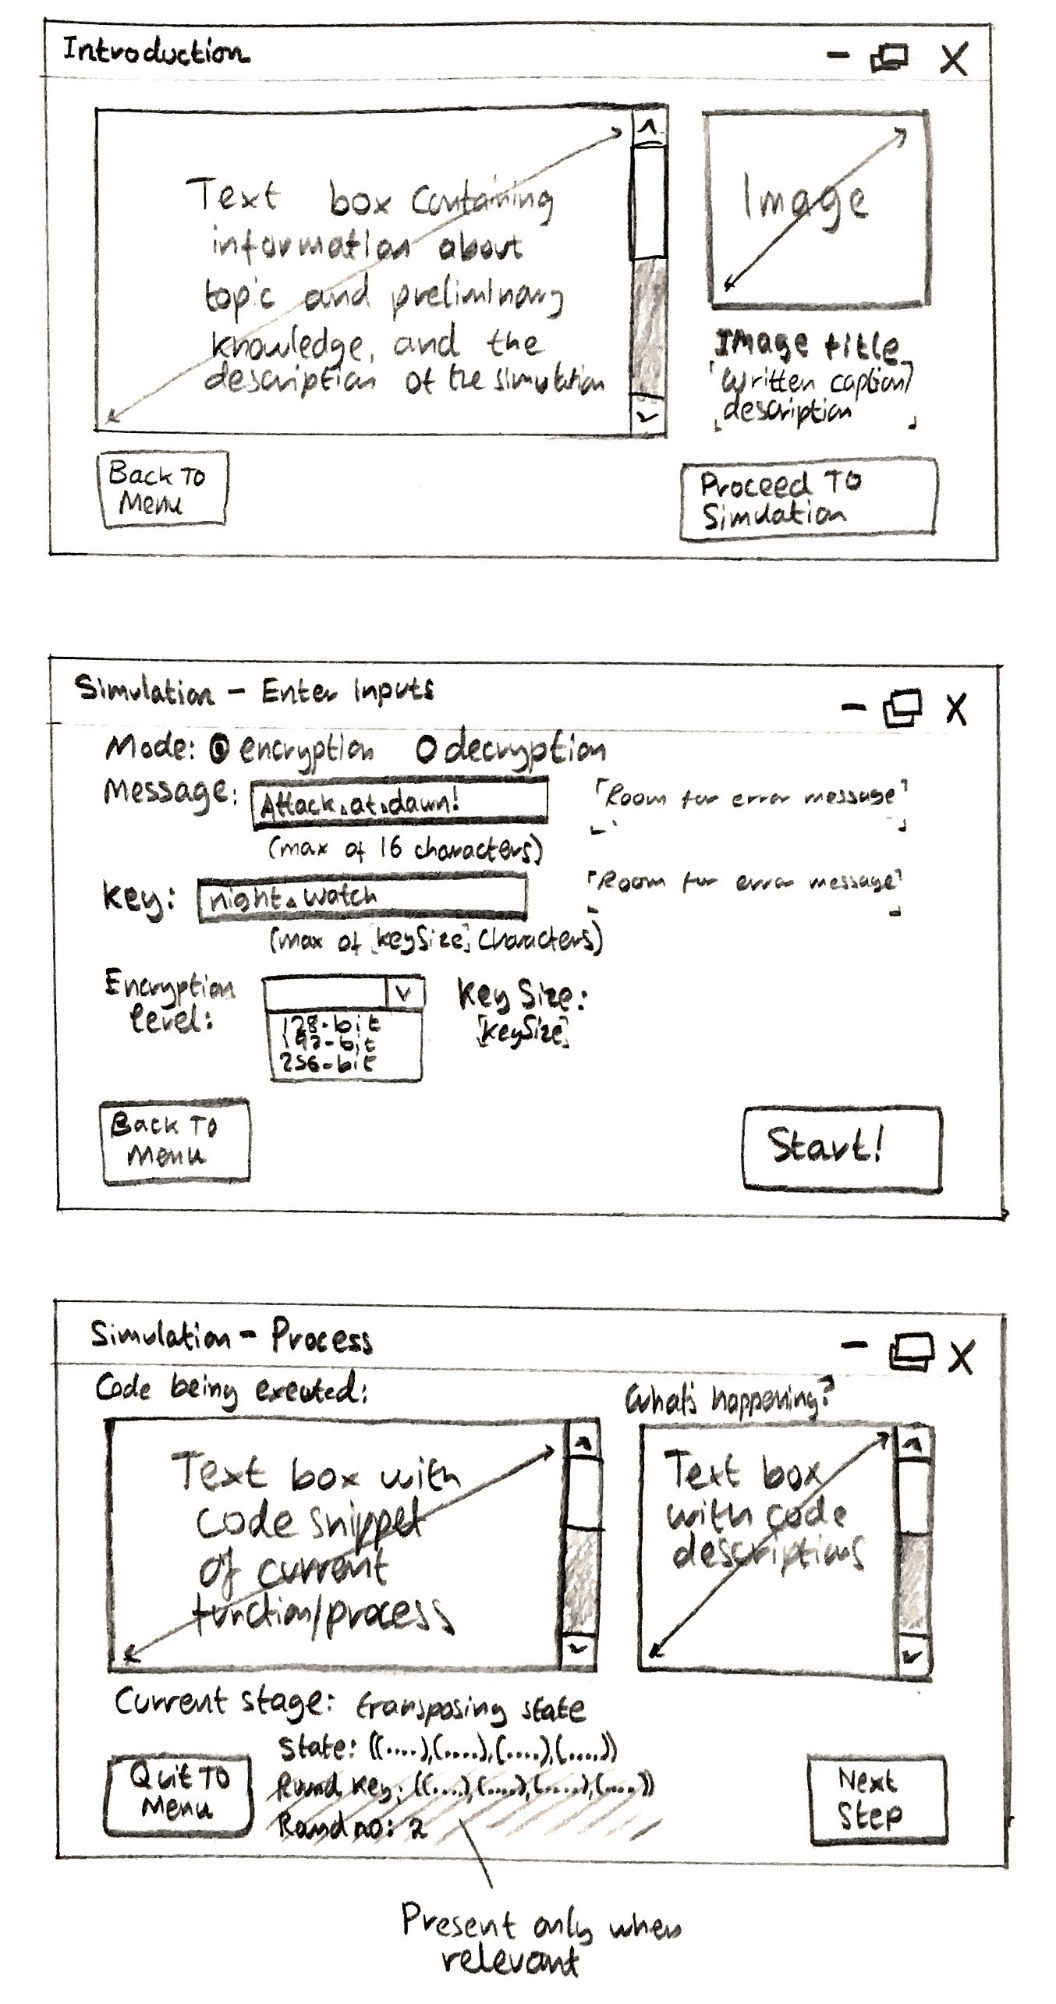 Introduction
Text box containing
information about
topic and preliminary
knowledge, and the
description of the simulation
Image
Image title
Written caption/
description
Back To
Menu
Proceed To
Simulation
Simulation - Enter Inputs
Mode: encryption decryption
Message: Attack at dawn!
"Room for error message"
(max of 16 characters)
Key: night watch
"Room for error message"
(max of [keySize] characters)
Encryption
level:
128-bit
192-bit
256-bit
Key Size:
[keySize]
Back To
Menu
Start!
Simulation - Process
Code being executed:
What's happening?
Text box with
code snippet
of current
function/process
Text box
with code
descriptions
Current stage: transposing state
State: ((....),(....),(....),(....))
Round Key: ((....),(....),(....),(....))
Round no: 2
Quit To
Menu
Next
Step
Present only when
relevant